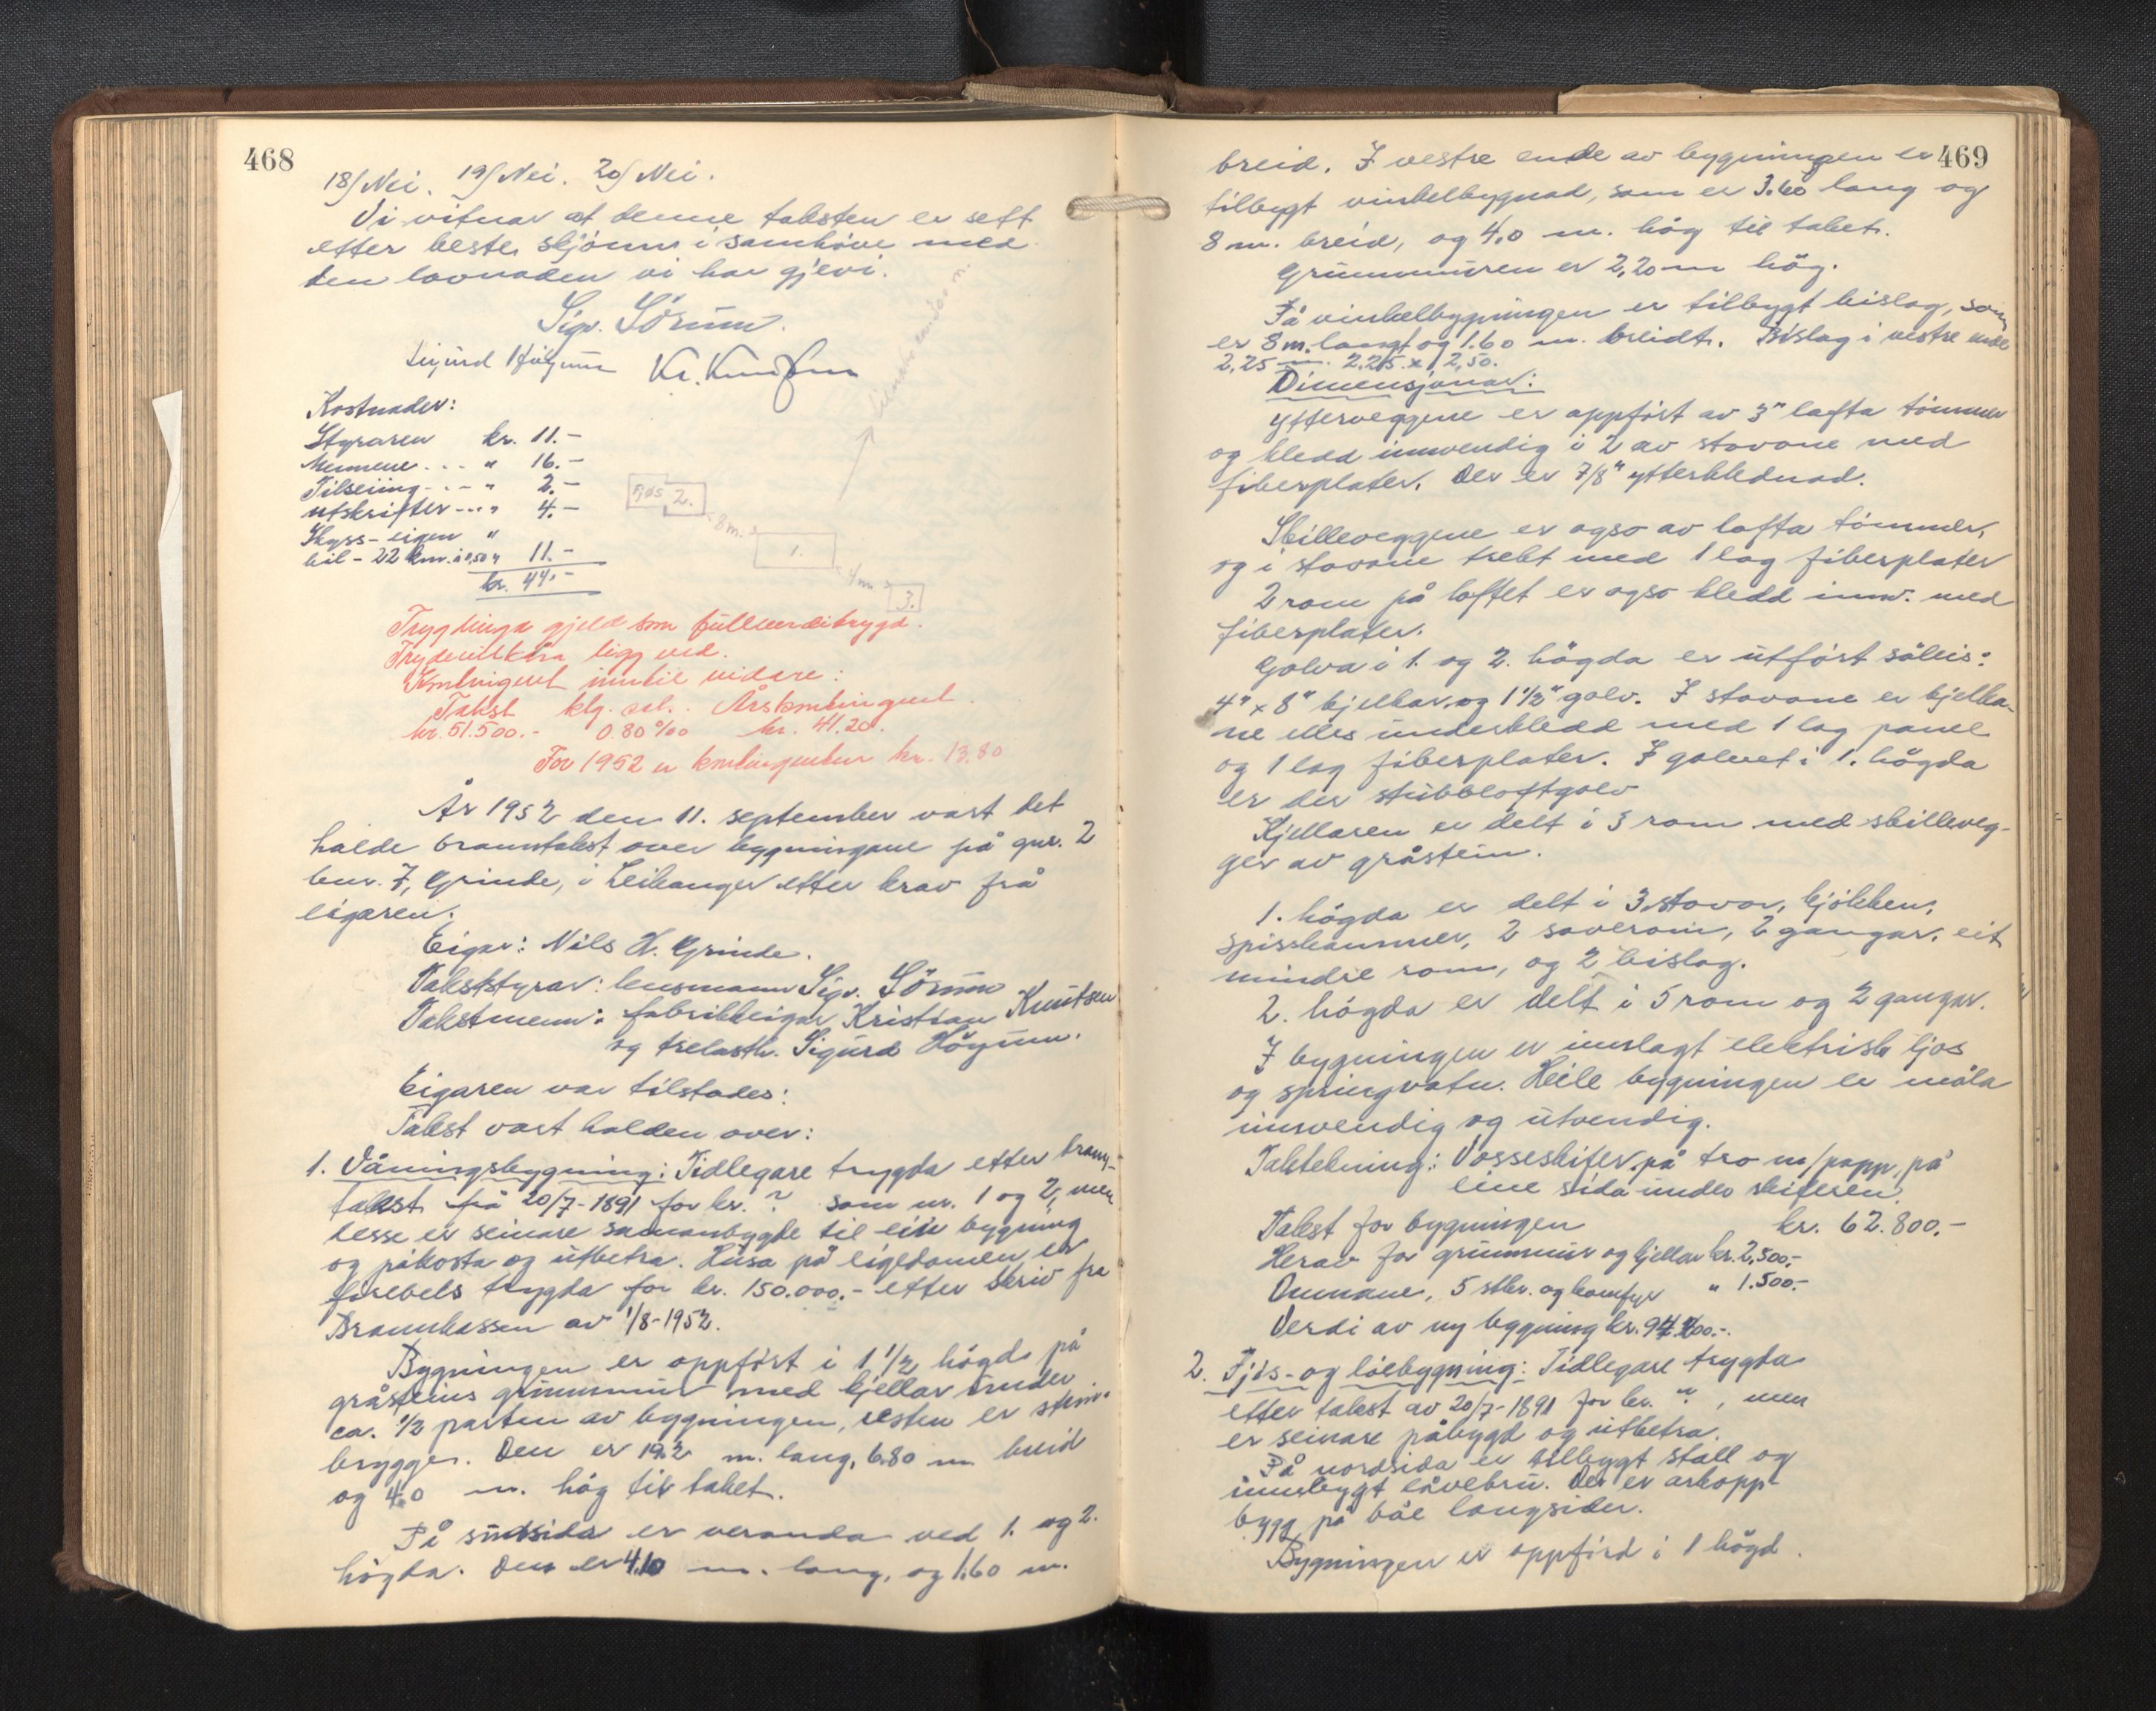 468
18/ Nei. 19/ Nei. 20/ Nei.
Vi vitnar at denne taksten er sett
etter beste skjönn i samhöve med
den lovnaden vi har gjevi.
Sigv. Sörum.
Sigurd Högum Kr. Knutsen
Kostnader:
Styraren kr. 11.-
Mennene . . . " 16.-
Tilseiing - . - " 2.-
utskrifter - . . " 4.-
Skyss - eigen "
bil - 22 km. à 0,50 " 11.-
kr. 44.-
Fjös 2.
8 m.
1.
4 m.
3.
Trygdinga gjeld som fullverditrygd.
Trygdevilkåra ligg ved.
Kontingent inntil vidare:
Takst klg. Årskontingent
kr. 51.500.- 0.80 ‰ kr. 41,20.
For 1952 er kontingenten kr. 13.80
År 1952 den 11. september vart det
halde branntakst over bygningane på gnr. 2
bnr. 7, Grinde, i Leikanger etter krav frå
eigaren.
Eigar: Nils H. Grinde.
Takststyrar: lensmann Sigv. Sörum
Takstmenn: fabrikkeigar Kristian Knutsen
og trelasth. Sigurd Högum.
Eigaren var tilstades:
Takst vart halden over:
1. Våningsbygning: Tidlegare trygda etter brann-
takst frå 20/7-1891 for kr. ? som nr. 1 og 2, men
desse er seinare samanbygde til ein bygning
og påkosta og utbetra. Husa på eigedomen er
förebels trygda for kr. 150.000.- etter skriv frå
Brannkassen av 1/8-1952.
Bygningen er oppfört i 1 1/2 högd på
gråsteins grunnmur med kjellar under
ca. 1/2 parten av bygningen, resten er stein-
brygger. Den er 19.2 m. lang, 6.80 m breid
og 4.0 m. hög til taket.
På sudsida er veranda ved 1. og 2.
högda. Den er 4.10 m. lang, og 1.60 m.
469
breid. I vestre ende av bygningen er
tilbygt vinkelbygnad, som er 3.60 lang og
8 m. breid, og 4,0 m. hög til taket.
Grunnmuren er 2,20 m hög.
På vinkelbygningen er tilbygt bislag, som
er 8 m. langt og 1.60 m. breidt. Bislag i vestre ende
2,25 m. 2.25 x 2,50.
Dimensjonar:
Ytterveggene er oppfört av 3" lafta tömmer
og kledd innvendig i 2 av stovone med
fiberplater. Der er 7/8" ytterklednad.
Skilleveggene er ogso av lafta tömmer,
og i stovone trekt med 1 lag fiberplater
2 rom på loftet er ogso kledd innv. med
fiberplater.
Golva i 1. og 2. högda er utfört såleis:
4" x 8" bjelkar, og 1 1/2" golv. I stovone er bjelka-
ne elles underkledd med 1 lag panel
og 1 lag fiberplater. I golvet i 1. högda
er der stubbloftgolv
Kjellaren er delt i 3 rom med skilleveg-
ger av gråstein.
1. högda er delt i 3 stovor, kjökken,
spiskammer, 2 soverom, 2 gangar, eit
mindre rom, og 2 bislag.
2. högda er delt i 5 rom og 2 gangar.
I bygningen er innlagt elektrisk ljos
og springvatn. Heile bygningen er måla
innvendig og utvendig.
Taktekning: Vosseskifer på tro m/papp, på
eine sida under skiferen.
Takst for bygningen kr. 62.800.-
Herav for grunnmur og kjellar kr. 2,500.-
Omnane, 5 stkr. og komfyr " 1.500.-
Verdi av ny bygning kr.
2. Fjös- og löebygning: Tidlegare trygda
etter takst av 20/7-1891 for kr. ", men
er seinare påbygd og utbetra.
På nordsida er tilbygt stall og
innbygt låvebru. Der er arkopp-
bygg på båe langsider.
Bygningen er oppförd i 1 högd.